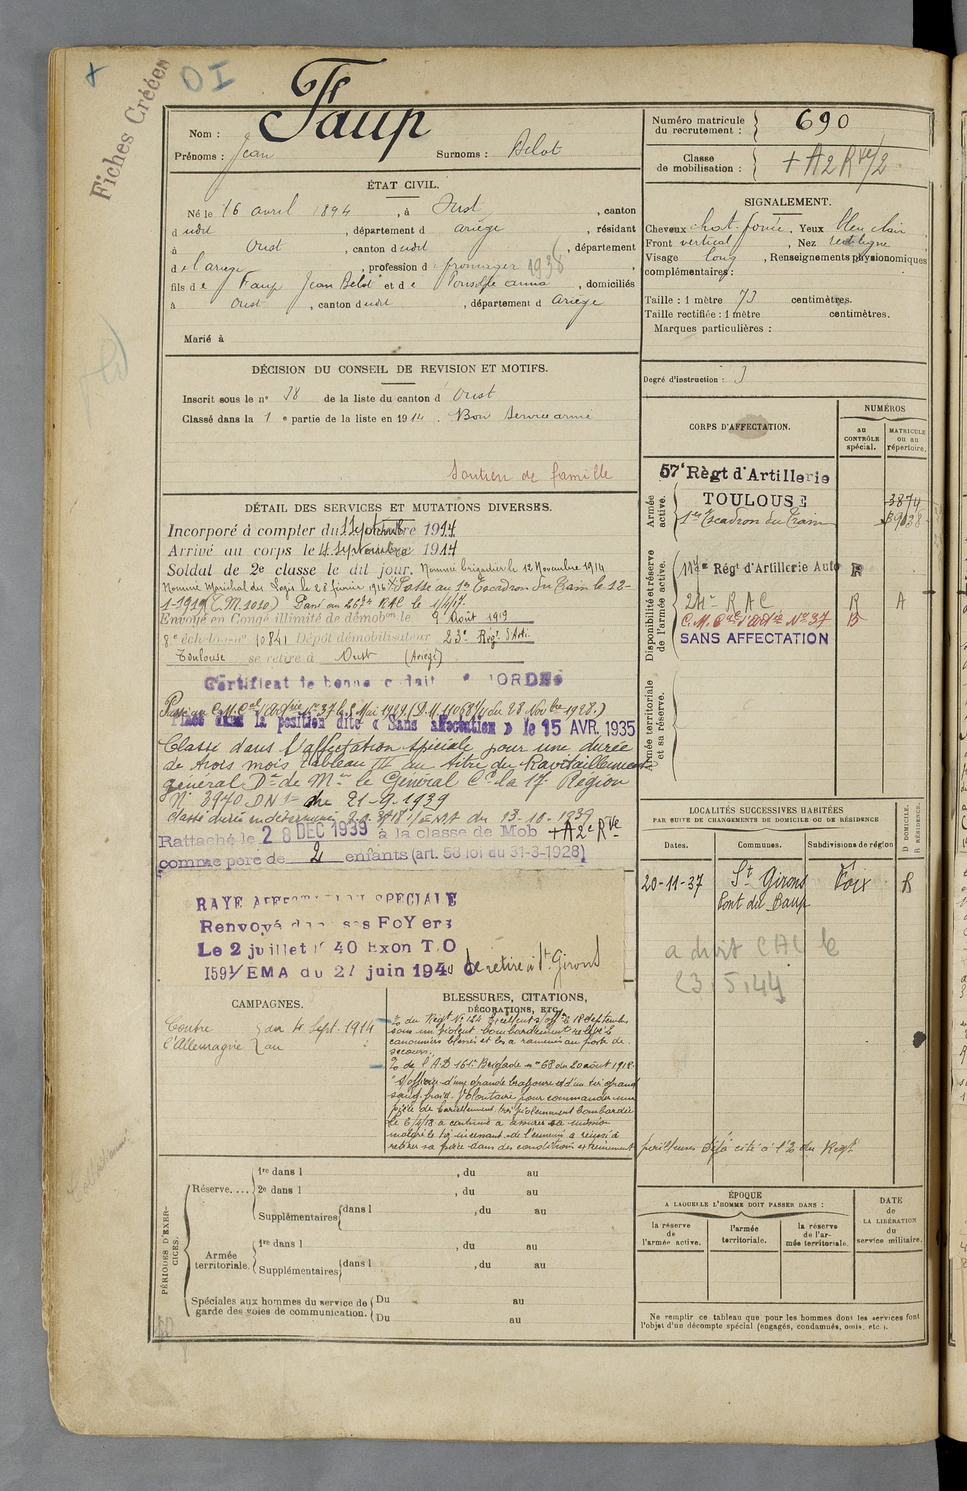 Fiches Créées
OI
Nom : Faup
Prénoms : Jean Surnoms : Belot
ÉTAT CIVIL.
Né le 16 avril 1894, à Oust, canton
d udit, département d Ariège, résidant
à Oust, canton d udit, département
d e l'ariège, profession d fromager 1938
fils d e Faup Jean Belot et d e anna, domiciliés
à Oust, canton d udit, département d Ariège
Marié à
DÉCISION DU CONSEIL DE REVISION ET MOTIFS.
Inscrit sous le n° 38 de la liste du canton d Oust
Classé dans la 1 e partie de la liste en 1914. Bon Service armé
Soutien de famille
DÉTAIL DES SERVICES ET MUTATIONS DIVERSES.
Incorporé à compter du Septembre 1914
Arrivé au corps le 4 Septembre 1914
Soldat de 2e classe le dit jour. Nommé brigadier le 12 Novembre 1914
Nommé Maréchal des Logis le 28 février 1916 Passé au 1er Escadron du Train le 12-
1-1919 (C.M. 1010) Passé au 267e RAC le
Envoyé en Congé illimité de démobon le 9 Août 1919
8e échelon n° 10841 Dépôt démobilisateur 23e Régt d'Arti.
Toulouse se retire à Oust (Ariège)
Certificat de bonne conduite
Passé au C.M. d'Artie N° 37 le 8 Mai 1929 (D.M. du 28 Novbre 1928.)
Placé dans la position dite « Sans affectation » le 15 AVR. 1935
Classé dans l'affectation spéciale pour une durée
de trois mois tableau III au titre du Ravitaillement
général Dn de Mr le Général Ct la 17e Région
N° 3940 DN 1 du 21-9-1939
Classé durée indéterminée du 13-10-1939
Rattaché le 28 DEC 1939 à la classe de Mob + A 2e Rve
comme père de 2 enfants (art. 58 loi du 31-3-1928)
RAYE AFFECTATION SPECIALE
Renvoyé dans ses FoYers
Le 2 juillet 1940 Exon T.O
1591/EMA du 27 juin 1940 se retire à St Girons
CAMPAGNES.
Contre l'Allemagne du 4 Sept. 1914
au
BLESSURES, CITATIONS,
DÉCORATIONS, ETC.
O du Régt N° 124 Excellent s/off. le 18 septembre
sous un violent bombardement a relevé
canonniers blessés et les a ramenés au poste de
secours.
O de l'A D 161e Brigade n° 68 du 20 août 1918.
"S/officier d'une grande bravoure et d'un très grand
sang froid. Volontaire pour commander une
pièce de harcèlement très violemment bombardée
le 6/4/18 a continué à assurer sa mission
malgré le tir incessant de l'ennemi a réussi à
retirer sa pièce dans des conditions extrêmement
périlleuses Déjà cité à l'O du Regt
PÉRIODES D'EXERCICES.
Réserve.... 1re dans l , du au
2e dans l , du au
Supplémentaires dans l , du au
Armée territoriale. 1re dans l , du au
Supplémentaires dans l , du au
Spéciales aux hommes du service de garde des voies de communication. Du au
Du au
Numéro matricule du recrutement : 690
Classe de mobilisation : + A 2 Rve/2
SIGNALEMENT.
Cheveux chat. foncé. Yeux bleu clair
Front vertical, Nez rectiligne
Visage long, Renseignements physionomiques
complémentaires :
Taille : 1 mètre 73 centimètres.
Taille rectifiée : 1 mètre centimètres.
Marques particulières :
Degré d'instruction : 3
CORPS D'AFFECTATION.
NUMÉROS
au CONTRÔLE spécial.
MATRICULE ou au répertoire.
Armée active.
57e Règt d'Artillerie
TOULOUSE 3874
1er Escadron du Train
Disponibilité et réserve de l'armée active.
117e Régt d'Artillerie Auto R
24e R A C R A
C.M. d'Artie N° 37 B
SANS AFFECTATION
Armée territoriale et sa réserve.
LOCALITÉS SUCCESSIVES HABITÉES
PAR SUITE DE CHANGEMENTS DE DOMICILE OU DE RÉSIDENCE
Dates. Communes. Subdivisions de région D DOMICILE. R RÉSIDENCE.
20-11-37 St Girons Foix R
Pont du Baup
a droit CAC le
23.5.44
ÉPOQUE
A LAQUELLE L'HOMME DOIT PASSER DANS :
la réserve de l'armée active.
l'armée territoriale.
la réserve de l'armée territoriale.
DATE de LA LIBÉRATION du service militaire.
Ne remplir ce tableau que pour les hommes dont les services font
l'objet d'un décompte spécial (engagés, condamnés, omis, etc.).